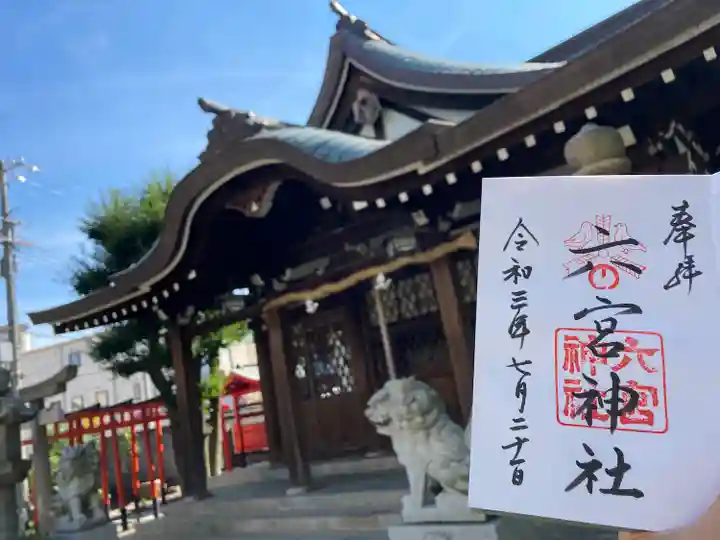 奉拝
六宮神社
六宮
神社
令和三年七月二十一日